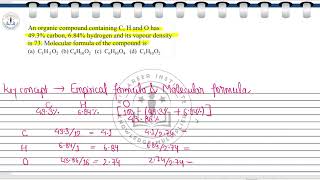 An organic compound containing C, H and O has
49.3% carbon, 6.84% hydrogen and its vapour density
is 73. Molecular formula of the compound is
(a) C₃H₅O₂ (b) C₆H₁₀O₂ (c) C₆H₁₀O₄ (d) C₃H₁₀O₂
Key concept → Empirical formula & Molecular formula
C H O
49.3% 6.84% [100 - (49.3% + 6.84)]
43.86%
C 49.3/12 = 4.1 4.1/2.74 =
H 6.84/1 = 6.84 6.84/2.74 =
O 43.86/16 = 2.74 2.74/2.74 =